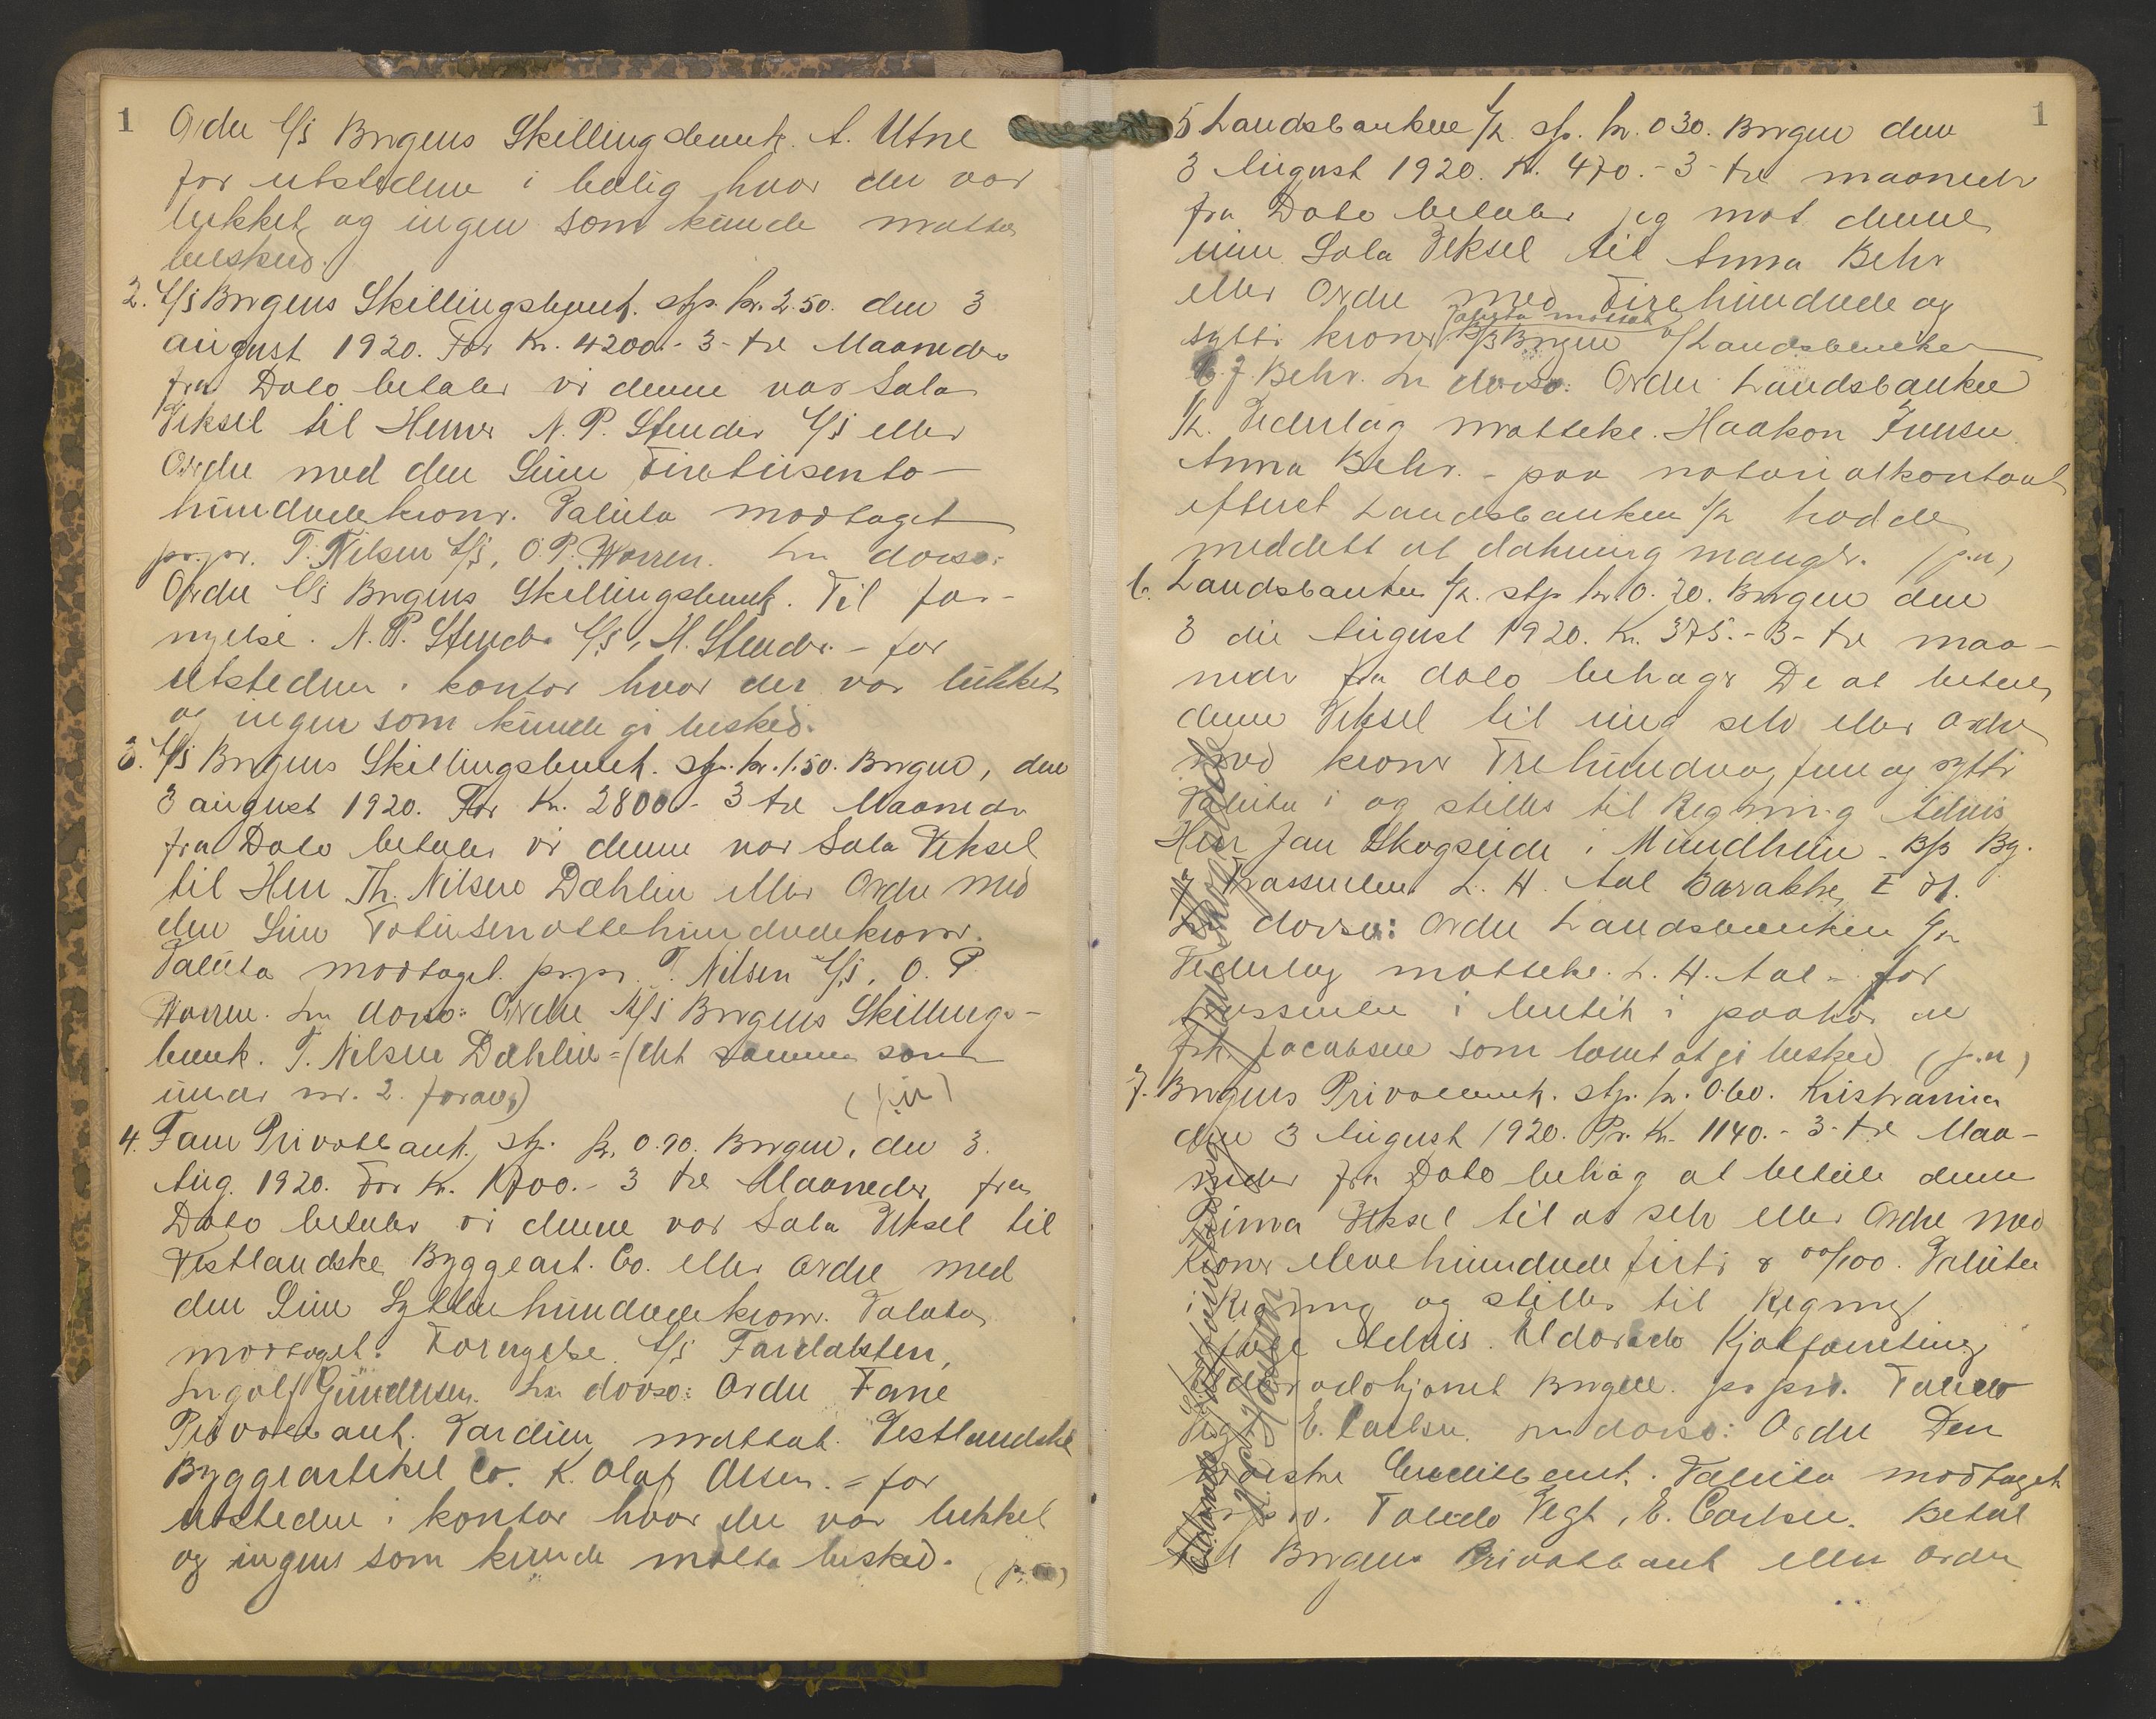 1
Ordre A/S Bergens Skillingsbank. A. Utne
for utstederen i bolig hvor der var
lukket og ingen som kunde motta
beskjed.
2. A/S Bergens Skillingsbank. stp. kr. 2.50. den 3
august 1920. For Kr. 4200.- 3 - tre Maaneder
fra Dato betaler vi denne vor Sola
Veksel til Herrer N. P. Stender A/S eller
Ordre med den Sum Firetusento-
hundredekroner. Valuta modtaget
pr.pr. T. Nilsen A/S, O. P. Worren. In dorso:
Ordre A/S Bergens Skillingsbank. Til for-
nyelse. N. P. Stender A/S, H. Stender. - for
utstederen i kontor hvor der var lukket
og ingen som kunde gi besked.
3. A/S Bergens Skillingsbank. stp. kr. 1.50. Bergen, den
3 august 1920. For Kr. 2800.- 3 tre Maaneder
fra Dato betaler vi denne vor Sola Veksel
til Herr Th. Nilsen Dæhlin eller Ordre med
den Sum Totusenottehundredekroner.
Valuta modtaget. pr.pr. T. Nilsen A/S, O. P.
Worren. In dorso: Ordre A/S Bergens Skillings-
bank. T. Nilsen Dæhlin = (det samme som
under nr. 2. foran)
4. Fane Privatbank. stp. kr. 0.90. Bergen, den 3.
Aug. 1920. For Kr. 1700.- 3 tre Maaneder fra
Dato betaler vi denne vor Sola Veksel til
Vestlandske Byggeart. Co. eller ordre med
den Sum Syttenhundredekroner. Valuta
mottaget. Fornyelse. A/S
Ingolf Gundersen. In dorso: Ordre Fane
Privatbank. Værdien mottat. Vestlandske
Byggeartikel Co. K. Olaf Olsen. = for
utstederen i kontor hvor der var lukket
og ingen som kunde motta besked.
1
5 Landsbanken A/L. stp. kr. 0 30. Bergen den
3 August 1920. Kr. 470.- 3 - tre maaneder
fra Dato betaler jeg mot denne
min Sola Veksel til Anna Behr
eller Ordre med Firehundrede og
sytti kroner Valuta mottat B/B Bergen A/L Landsbanken
C. J. Behr. In dorso: Ordre Landsbanken
A/L. Vederlag motteke. Haakon Jensen
Anna Behr. - paa notarialkontoret
efteret Landsbanken A/L hadde
meddelt at dækning mangler. (p.n)
6. Landsbanken A/L. stp kr. 0. 20. Bergen den
3 die August 1920. Kr. 375.- 3 - tre maa-
neder fra dato behager De at betale
denne Veksel til mig selv eller ordre
med kroner Trehundreog fem og sytti
Valuta i og stilles til Regning advis
Herr Jan Skogseide i Mundheim - B/B Bg.
Trassenten L. H. Aal Barakke I
In dorso: Ordre Landsbanken A/L
Vederlag motteke. L. H. Aal - for
trassenten i butik i paahør av
frk. Jacobsen som lovet at gi besked (p.n)
7. Bergens Privatbank. stp. kr. 0.60. Kristiania
den 3 August 1920. Pr. Kr. 1140.- 3 - tre Maa-
neder fra Dato behag at betale denne
Prima Veksel til os selv eller Ordre med
Kroner elevehundrede firti & 00/100. Valuta
i Regning og stilles til Regning
Advis. Eldorado Kjolforretning
Bergen. pr pr. Toledo
Vegt E. Carlsen. In dorso: Ordre Den
norske Creditbank. Valuta modtaget
Toledo Vegt, E. Carlsen. Betal
til Bergens Privatbank eller ordre